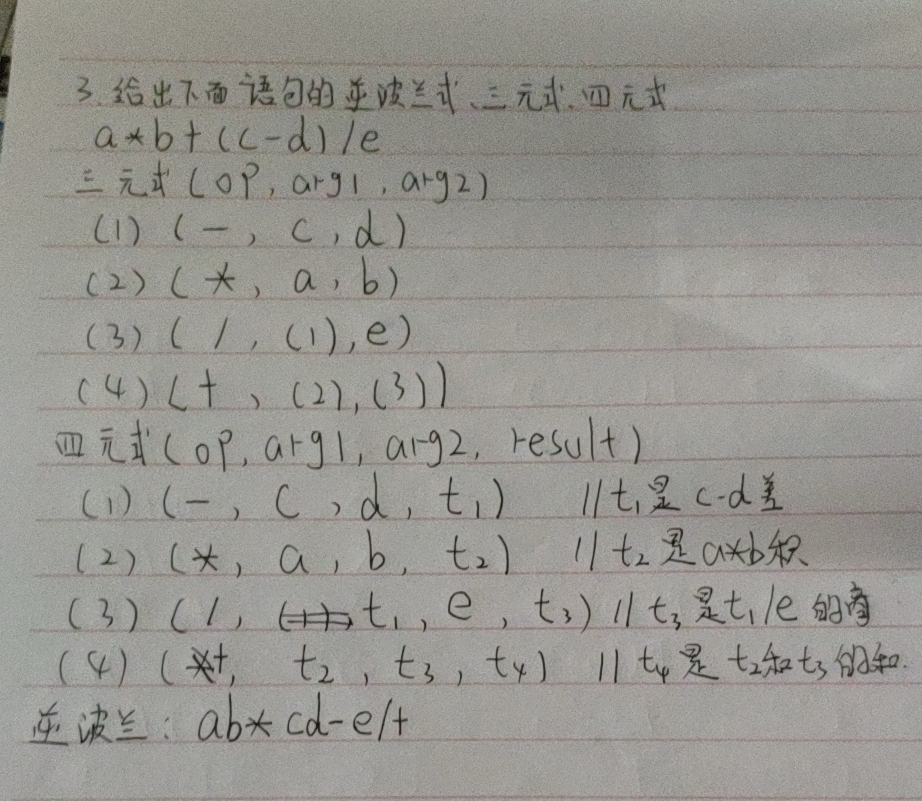 3.给出下面语句的逆波兰式、三元式、四元式
a*b+(c-d)/e
三元式(op, arg1, arg2)
(1) (-, c, d)
(2) (*, a, b)
(3) (/, (1), e)
(4) (+, (2), (3))
四元式(op, arg1, arg2, result)
(1) (-, c, d, t₁) //t₁是c-d差
(2) (*, a, b, t₂) //t₂是a*b积
(3) (/, t₁, e, t₃) //t₃是t₁/e的商
(4) (+, t₂, t₃, t₄) //t₄是t₂和t₃的和.
逆波兰: ab*cd-e/+